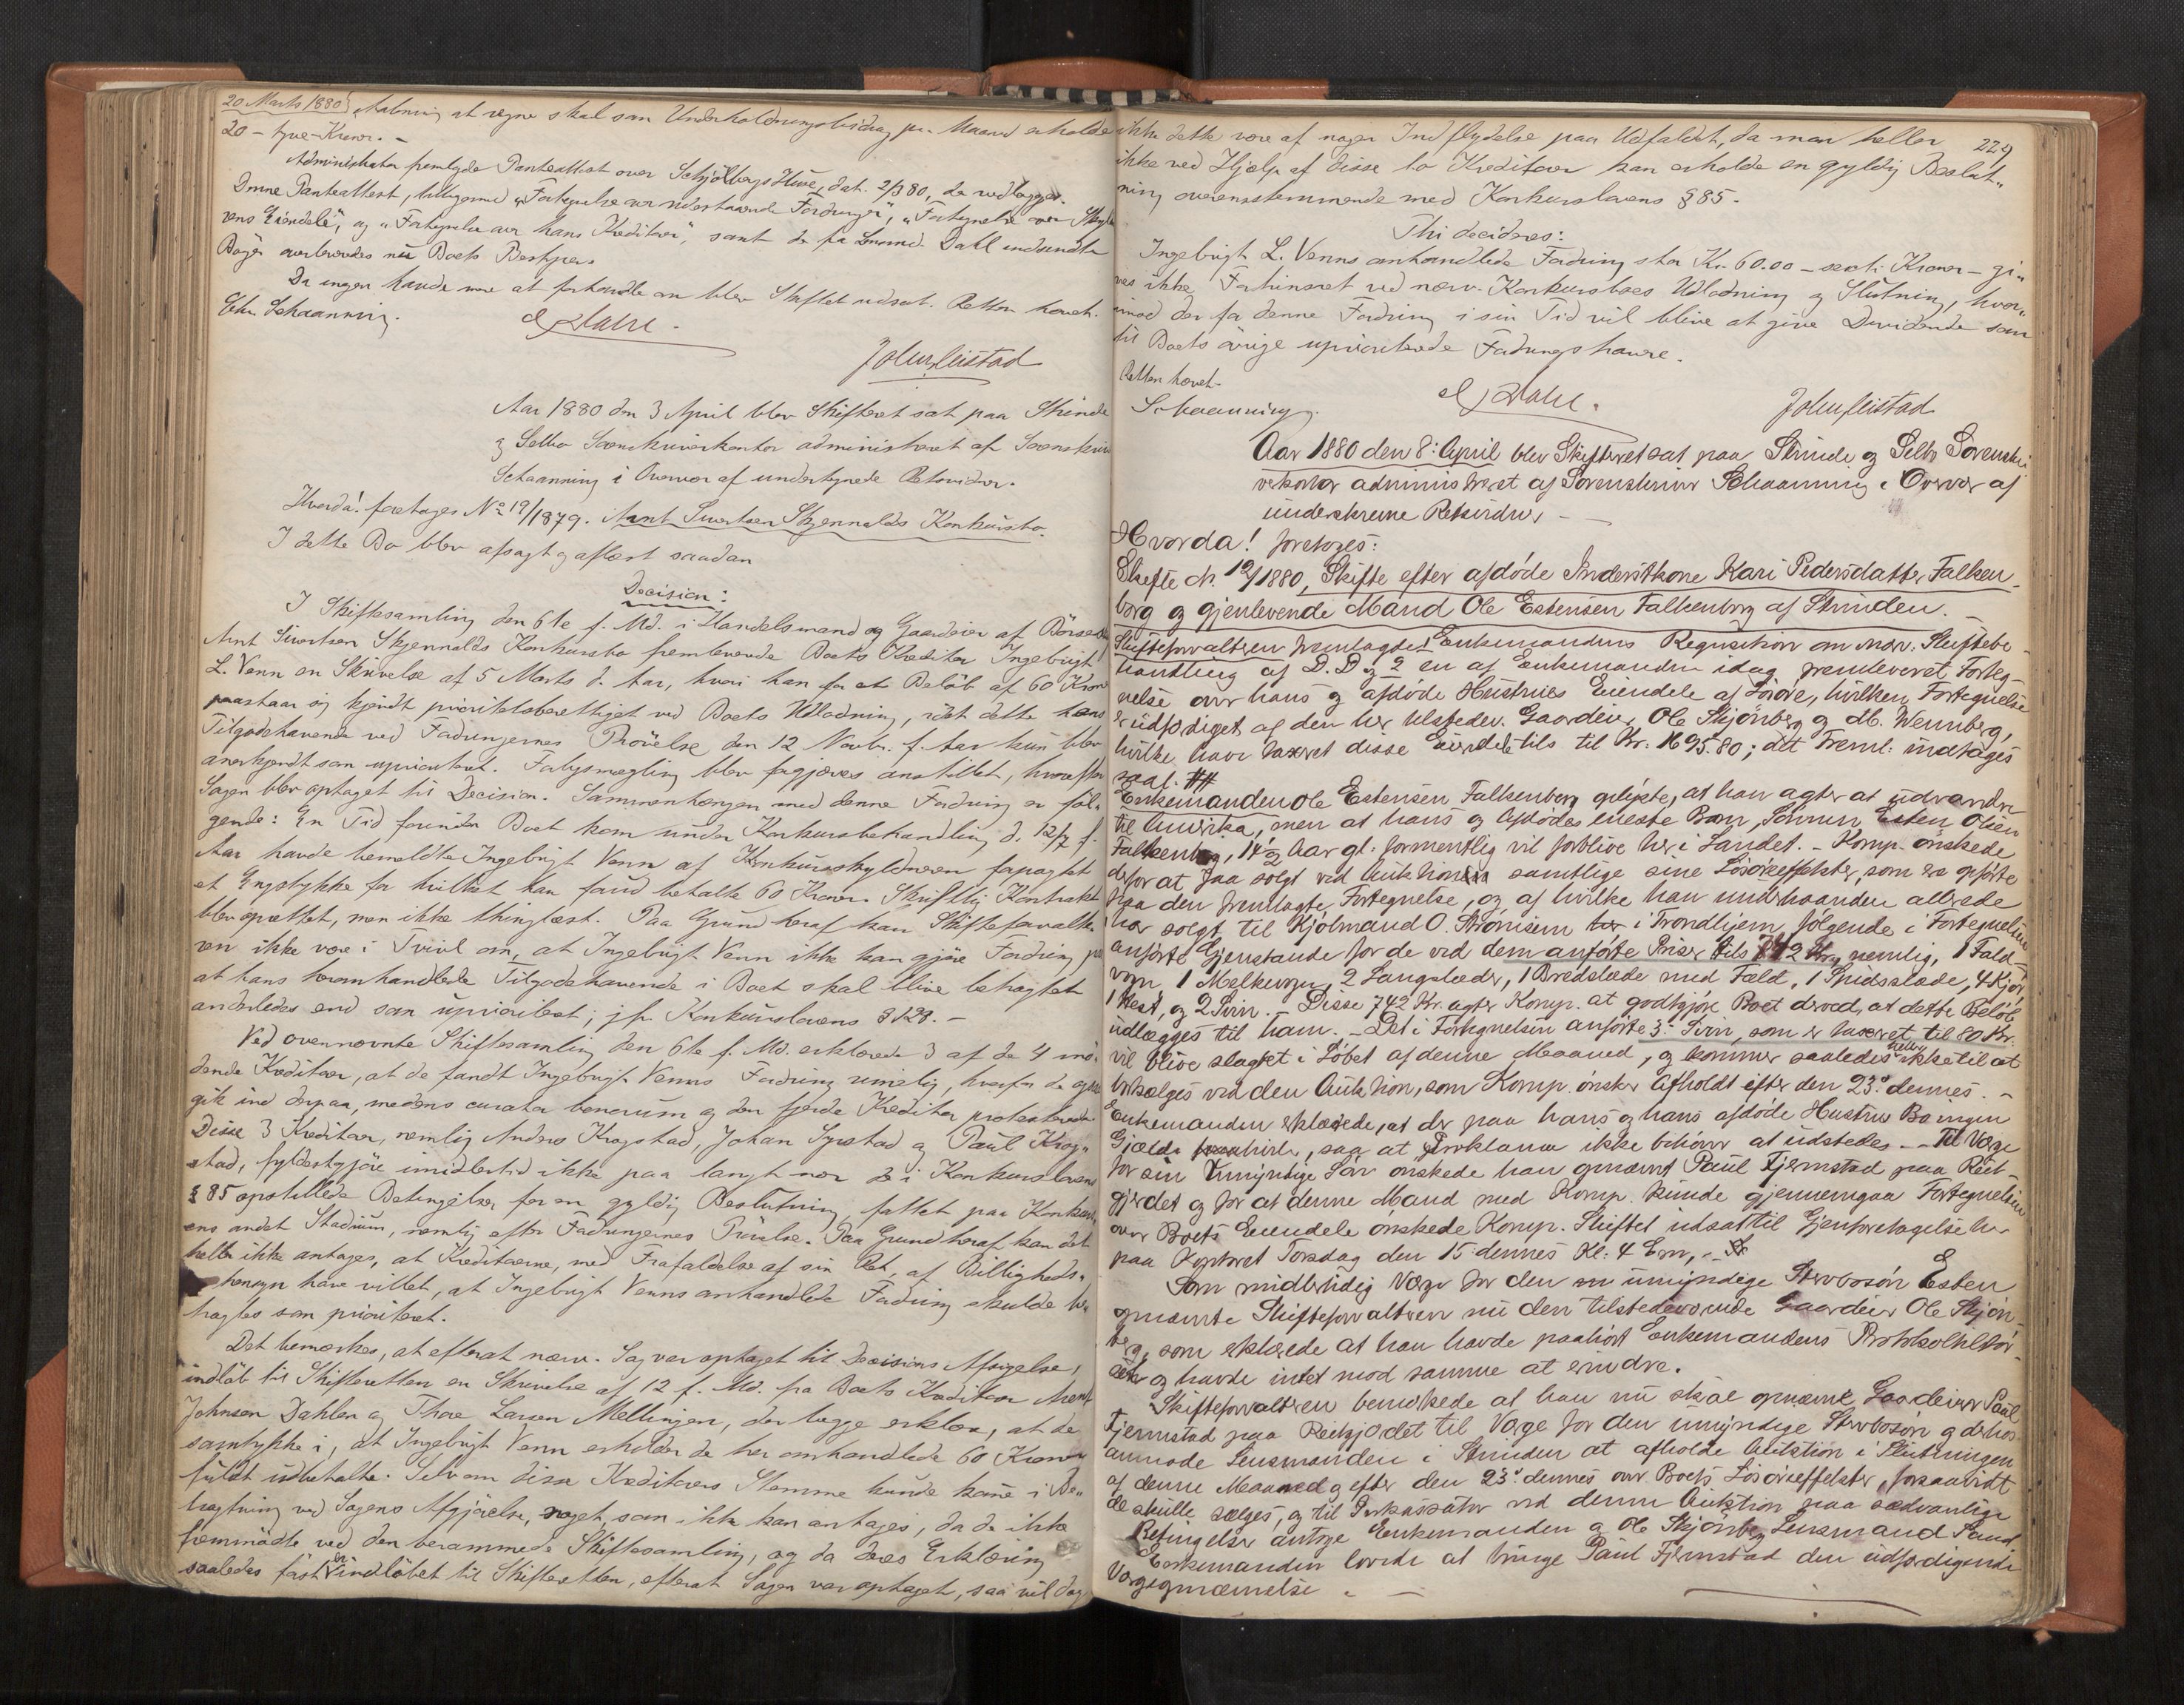 20 Marts 1880) Aabning at regne skal som Underholdningsbidrag pr. Maaned erholde
20 - tyve - Kroner. -
Administrator fremlagde Panteattest over Schjölbergs Huse, dat. 2/3 80, der vedlægges.
Denne Panteattest, tilligemed "Fortegnelse over udestaaende Fordringer", "Fortegnelse over Skyld-
nerens Eiendele", og "Fortegnelse over hans Kreditorer", samt de fra Lensmd. Dahl indsendte
Bøger overleveredes nu Boets Bestyrer.
Da ingen havde mere at forhandle om blev Skiftet udsat. Retten hævet.
Chr. Schaanning.
John Leistad
Aar 1880 den 3 April blev Skifteret sat paa Strinde
og Selbo Sorenskriverkontor administreret af Sorenskriver
Schaanning i Overvær af undertegnede Retsvidner.
Hvorda! foretages No 19/1879. Arnt Sivertsen Skjennalds Konkursbo.
I dette Bo blev afsagt og aflæst saadan
Decision:
I Skiftesamling den 6te f. Md. i Handelsmand og Gaardeier af Börsen
Arnt Sivertsen Skjennalds Konkursbo fremleverede Boets Kreditor Ingebrigt
L. Venn en Skrivelse af 5 Marts d. Aar, hvori han for et Beløb af 60 Kroner
paastaar sig kjendt prioritetsberettiget ved Boets Udlodning, idet dette hans
Tilgodehavende ved Fordringernes Prövelse den 12 Novbr. f. Aar kun blev
anerkjendt som uprioriteret. Forligsmægling blev forgjæves anstillet, hvorefter
Sagen blev optaget til Decision. Sammenhængen med denne Fordring er föl-
gende: En Tid forinden Boet kom under Konkursbehandling d. 12/7 f.
Aar havde bemeldte Ingebrigt Venn af Konkursskyldneren forpagtet
et Engstykke for hvilket han forud betalte 60 Kroner. Skriftlig Kontrakt
blev oprettet, men ikke thinglæst. Paa Grund heraf kan Skifteforvalte-
ren ikke være i Tvivl om, at Ingebrigt Venn ikke kan gjöre Fordring paa
at hans heromhandlede Tilgodehavende i Boet skal blive betragtet
anderledes end som uprioriteret; jfr. Konkurslovens § 128. -
Ved ovennævnte Skiftesamling den 6te f. Md. erklærede 3 af de 4 mö-
dende Kreditorer, at de fandt Ingebrigt Venns Fordring rimelig, hvorfor de ogsaa
gik ind derpaa, medens curator bonorum og den fjerde Kreditor protesterede.
Disse 3 Kreditorer, nemlig Anders Krogstad, Johan Syrstad og Paul Krog-
stad, fyldestgjöre imidlertid ikke paa langt nær de i Konkurslovens
§ 85 opstillede Betingelser for en gyldig Beslutning, fattet paa Konkurs-
ens andet Stadium, nemlig efter Fordringernes Prövelse. Paa Grund heraf kan det
heller ikke antages, at Kreditorerne, med Frafaldelse af sin Ret, af Billigheds-
hensyn have villet, at Ingebrigt Venns omhandlede Fordring skulde be-
tragtes som prioriteret.
Det bemærkes, at efterat nærv. Sag var optaget til Decisions Afsigelse,
indlöb til Skifteretten en Skrivelse af 12 f. Md. fra Boets Kreditorer Arent
Johnsen Dahlen og Thore Larsen Mellingen, der begge erklære, at de
samtykke i, at Ingebrigt Venn erholder de her omhandlede 60 Kroner
fuldt udbetalte. Selv om disse Kreditorers Stemme kunde komme i Be-
tragtning ved Sagens Afgjörelse, noget, som ikke kan antages, da de ikke
fremmödte ved den berammede Skiftesamling, og da deres Erklæring
saaledes först er indlöbet til Skifteretten, efterat Sagen var optaget, saa vil dog
229
ikke dette være af nogen Indflydelse paa Udfaldet, da man heller
ikke ved Hjælp af disse to Kreditorer kan erholde en gyldig Beslut-
ning overensstemmende med Konkurslovens § 85.
Thi decideres:
Ingebrigt L. Venns omhandlede Fordring stor Kr. 60.00 - sexti Kroner - gi-
ves ikke Fortrinsret ved nærv. Konkursboes Udlodning og Slutning, hvor-
imod der for denne Fordring i sin Tid vil blive at give Dividende som
til Boets övrige uprioriterede Fordringshavere.
Retten hævet.
Schaanning.
John Leistad
Aar 1880 den 8: April blev Skifteret sat paa Strinde og Selbo Sorenskri-
verkontor administreret af Sorenskriver Schaanning i Overvær af
underskrevne Retsvidner -
Hvorda! foretoges:
Skifte No. 19/1880, Skifte efter afdöde Inderstkone Kari Pedersdatter Falken-
borg og gjenlevende Mand Ole Estensen Falkenborg af Strinden.
Skifteforvalteren fremlagde 1 Enkemandens Requisition om nærv. Skiftebe-
handling af D. D. og 2 en af Enkemanden idag fremleveret Forteg-
nelse over hans og afdöde Hustrues Eiendele af Lösöre, hvilken Fortegnelse
er udfærdiget af den her tilstedev. Gaardeier Ole Skjönberg og M. Wennberg,
hvilke have taxeret disse Eiendele tils til Kr. 1695.80; det Freml. indtages
saal. ##
Enkemanden Ole Estensen Falkenborg oplyste, at han agter at udvandre
til Amerika, men at hans og Afdödes eneste Barn, Sönnen Esten Olsen
Falkenborg, 14 1/2 Aar gl. formentlig vil forblive her i Landet. - Komp. önskede
derfor at faa solgt ved Auktion samtlige sine Lösöreeffekter, som ere opförte
paa den fremlagte Fortegnelse, og af hvilke han underhaanden allerede
har solgt til Kjölmand O. i Trondhjem fölgende i Fortegnelsen
anförte Gjenstande for de ved dem anförte Priser tils 742 Kr., nemlig, 1
vogn, 1 Melkevogn, 2 Langslæder, 1 Bredslæde med Fæld, 1 Spidsslæde, 4 Kjör,
1 Hest, og 2 Svin. - Disse 742 Kr. agter Komp. at godtgjöre Boet derved, at dette Belöb
udlægges til ham. - Det i Fortegnelsen anförte 3: Svin, som er taxeret til 80 Kr.
vil blive slagtet i Löbet af denne Maaned, og kommer saaledes heller ikke til at
forsælges ved den Auktion, som Komp. önsker afholdt efter den 23: dennes. -
Enkemanden erklærede, at der paa hans og hans afdöde Hustrues Bo ingen
Gjæld, saa at Proklama ikke behöver at udstedes. - Til Værge
for sin umyndige Sön önskede han opnævnt Paul Fjermstad paa Reit-
gjerdet og for at denne Mand med Komp. kunde gjennemgaa Fortegnelsen
over Boets Eiendele önskede Komp. Skiftet udsat til Gjenforetagelse her
paa Kontoret Torsdag den 15 dennes Kl: 4 Em, -
Som midlertidig Værge for den umyndige Stervbosön Esten
opnævnte Skifteforvalteren nu den tilstedeværende Gaardeier Ole Skjön-
berg, som erklærede at han havde paahört Enkemandens Protokoltilför-
sler og havde intet mod samme at erindre.
Skifteforvalteren bemærkede at han nu skal opnævne Gaardeier Paul
Fjermstad paa Reitgjerdet til Værge for den umyndige Stervbosön og derhos
anmode Lensmanden i Strinden at afholde Auktion i Slutningen
af denne Maaned og efter den 23: dennes over Boets Lösöreeffekter, forsaavidt
de skulle sælges, og til Inkassator ved denne Auktion paa sædvanlige
Betingelser antoge Enkemanden og Ole Skjönberg Lensmand Saud.
Enkemanden lovede at bringe Paul Fjermstad den udfærdigende
Værgeopnævnelse. -